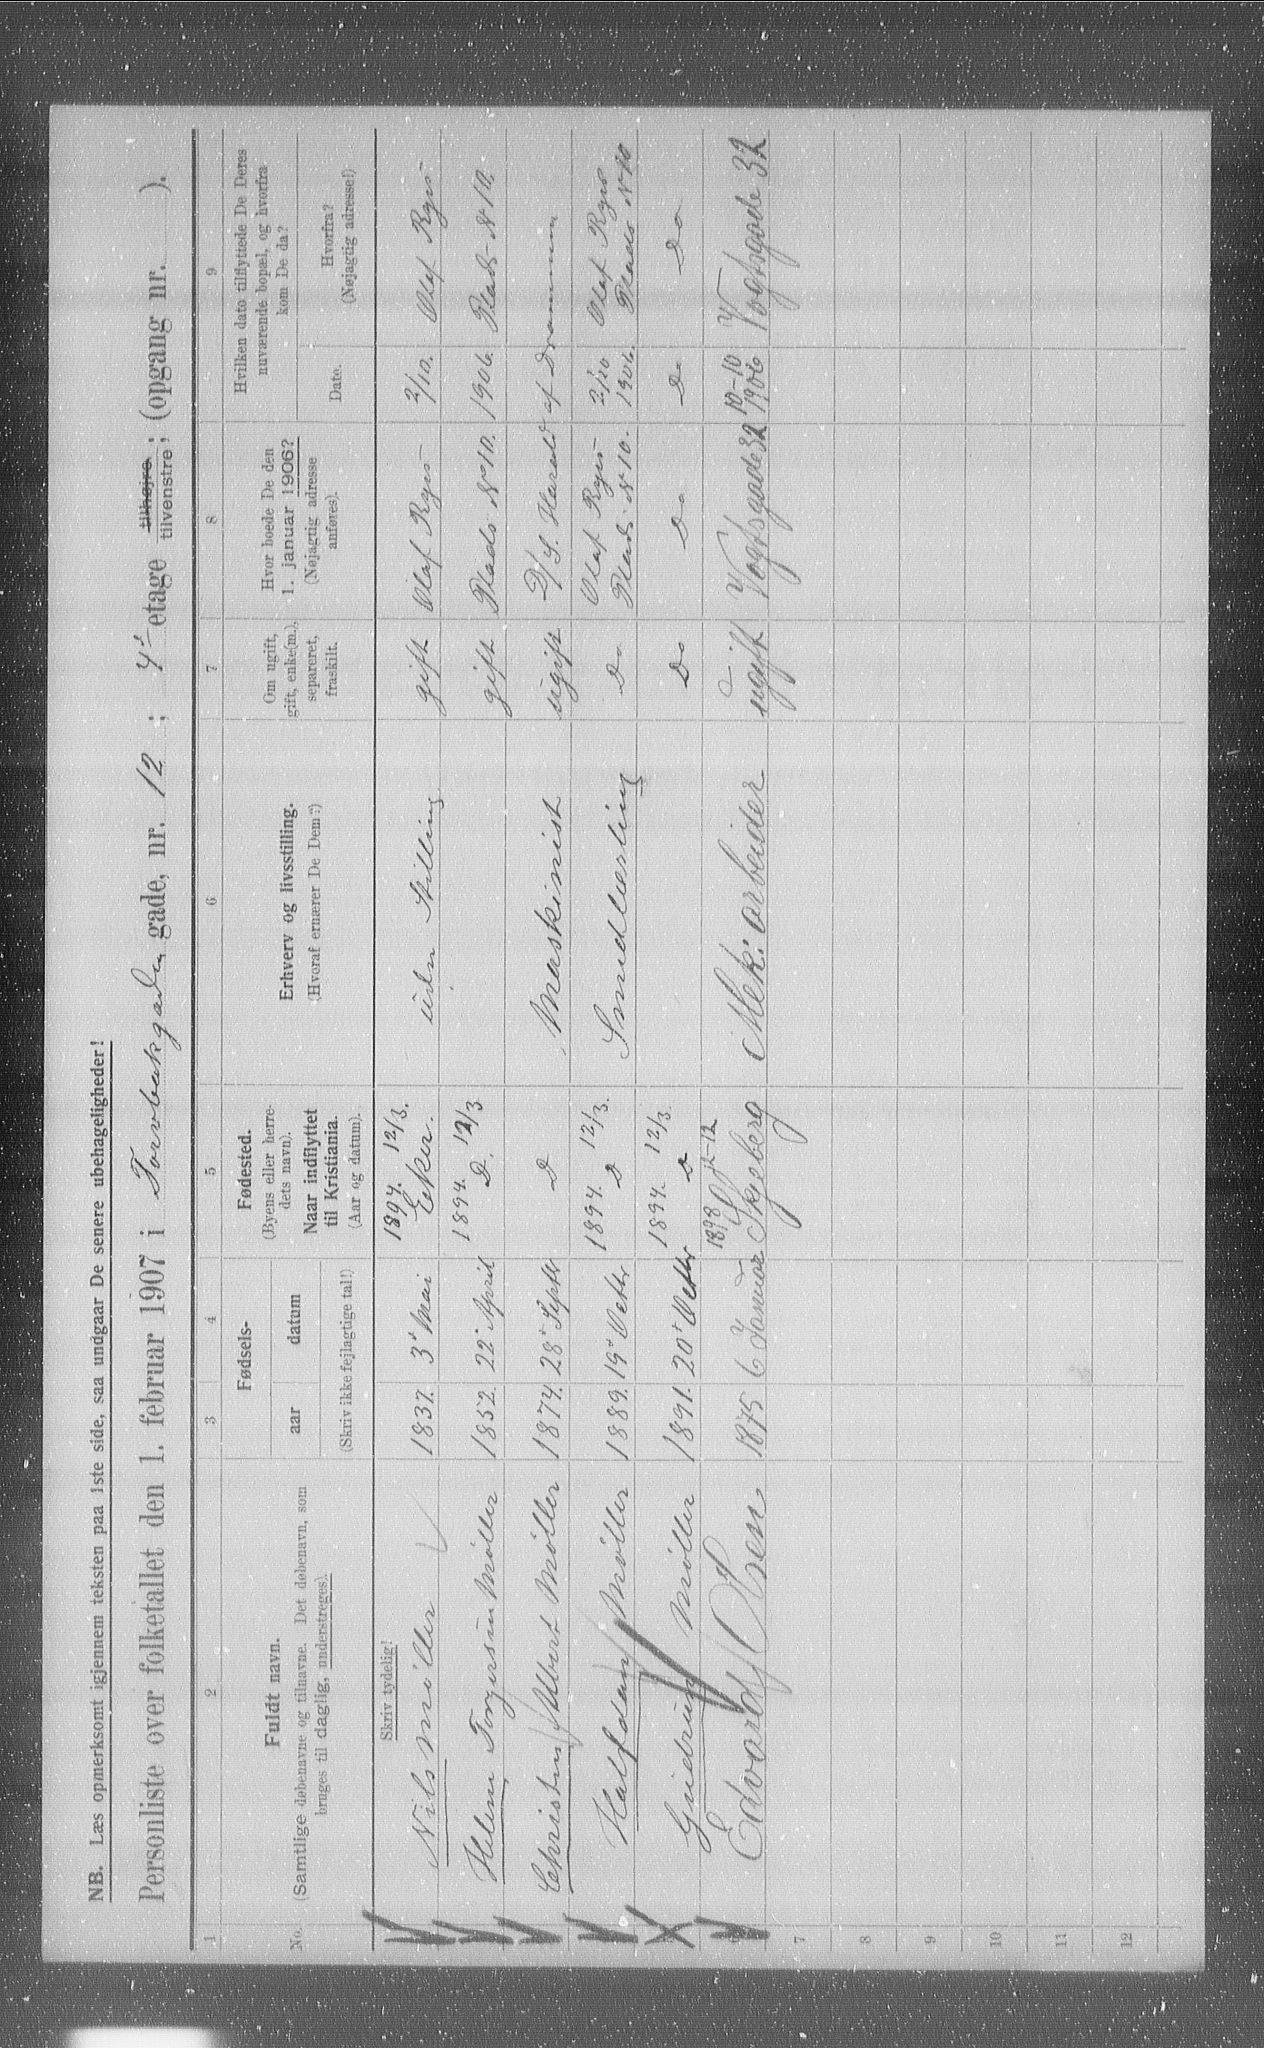 NB. Læs opmerksomt igjennem teksten paa 1ste side, saa undgaar De senere ubehageligheder!
Personliste over folketallet den 1. februar 1907 i Torvbakgaden gade, nr. 12 ; 4' etage tilhøjre tilvenstre; (opgang nr. ).
1 2 3 4 5 6 7 8 9
No.
Fuldt navn.
(Samtlige døbenavne og tilnavne. Det døbenavn, som
bruges til daglig, understreges).
Fødsels-
aar datum
(Skriv ikke fejlagtige tal!)
Fødested.
(Byens eller herre-
dets navn).
Naar indflyttet
til Kristiania.
(Aar og datum).
Erhverv og livsstilling.
(Hvoraf ernærer De Dem?)
Om ugift,
gift, enke(m.),
separeret,
fraskilt.
Hvor boede De den
1. januar 1906?
(Nøjagtig adresse
anføres).
Hvilken dato tilflyttede De Deres
nuværende bopæl, og hvorfra
kom De da?
Dato.
Hvorfra?
(Nøjagtig adresse!)
Skriv tydelig!
Nils Møller 1837. 3' Mai 1894. 12/3. Eker. uden Stilling gift Olaf Ryes 2/10. Olaf Ryes
Helene Torgersen Møller 1852. 22' April 1894. 12/3 D. gift Plads N 10. 1906. Plads N 10.
Christun Albert Møller 1874. 28' Septb D Maskinist ugift D/S. Harald af Drammen
Halfdan Møller 1889. 19' Octb 1894. 12/3. D Smedlærling Do Olaf Ryes Plads N 10. 2/10 1906. Olaf Ryes Plads N 10
Gudrun Møller 1891. 20' Octbr 1894. 12/3 D Do Do Do Do
6 Edvard Olsen 1875 6 Januar 1898 12 Skjeberg Mek: arbeider ugift Vogtsgade 32 10-10 1906 Vogtsgade 32
7
8
9
10
11
12